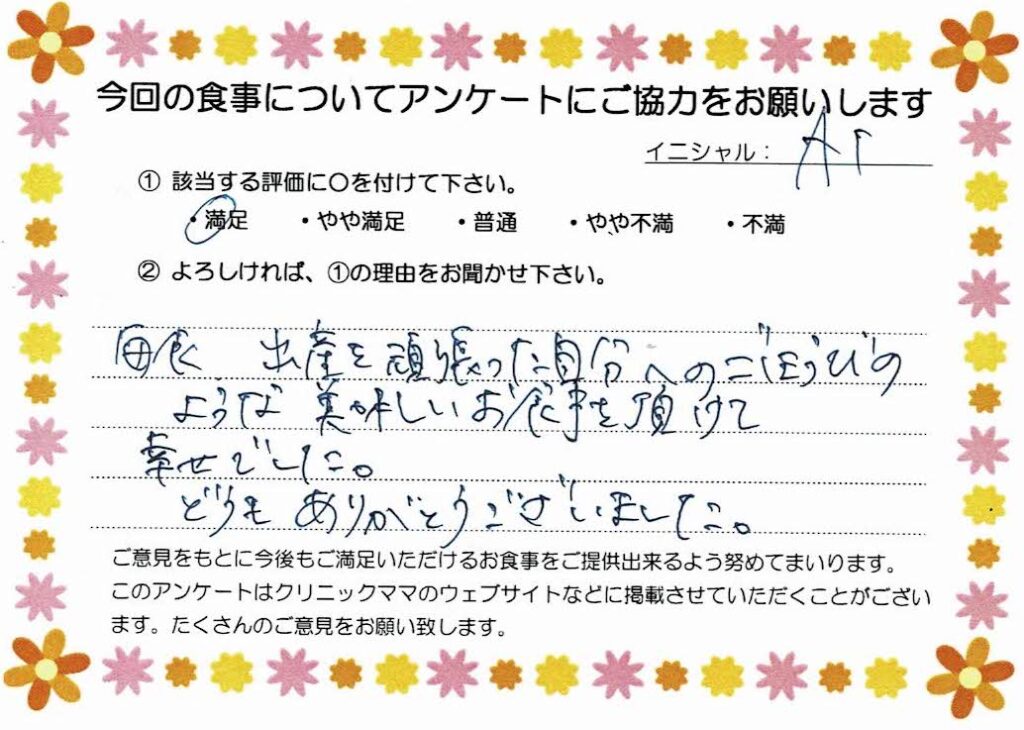 今回の食事についてアンケートにご協力をお願いします
イニシャル：
① 該当する評価に〇を付けて下さい。
・満足　・やや満足　・普通　・やや不満　・不満
② よろしければ、①の理由をお聞かせ下さい。
毎食 出産を頑張った自分へのごほうびの
ような 美味しいお食事を頂けて
幸せでした。
どうも ありがとうございました。
ご意見をもとに今後もご満足いただけるお食事をご提供出来るよう努めてまいります。
このアンケートはクリニックママのウェブサイトなどに掲載させていただくことがござい
ます。たくさんのご意見をお願い致します。